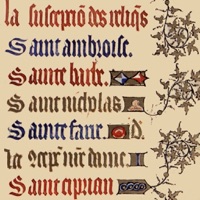 la suscepciõ des reliq̃s
Saint ambroise.
Sainte barbe.
Saint nicholas
Sainte fare. d.
la cõcep nr̃e dame.
Saint ciprian